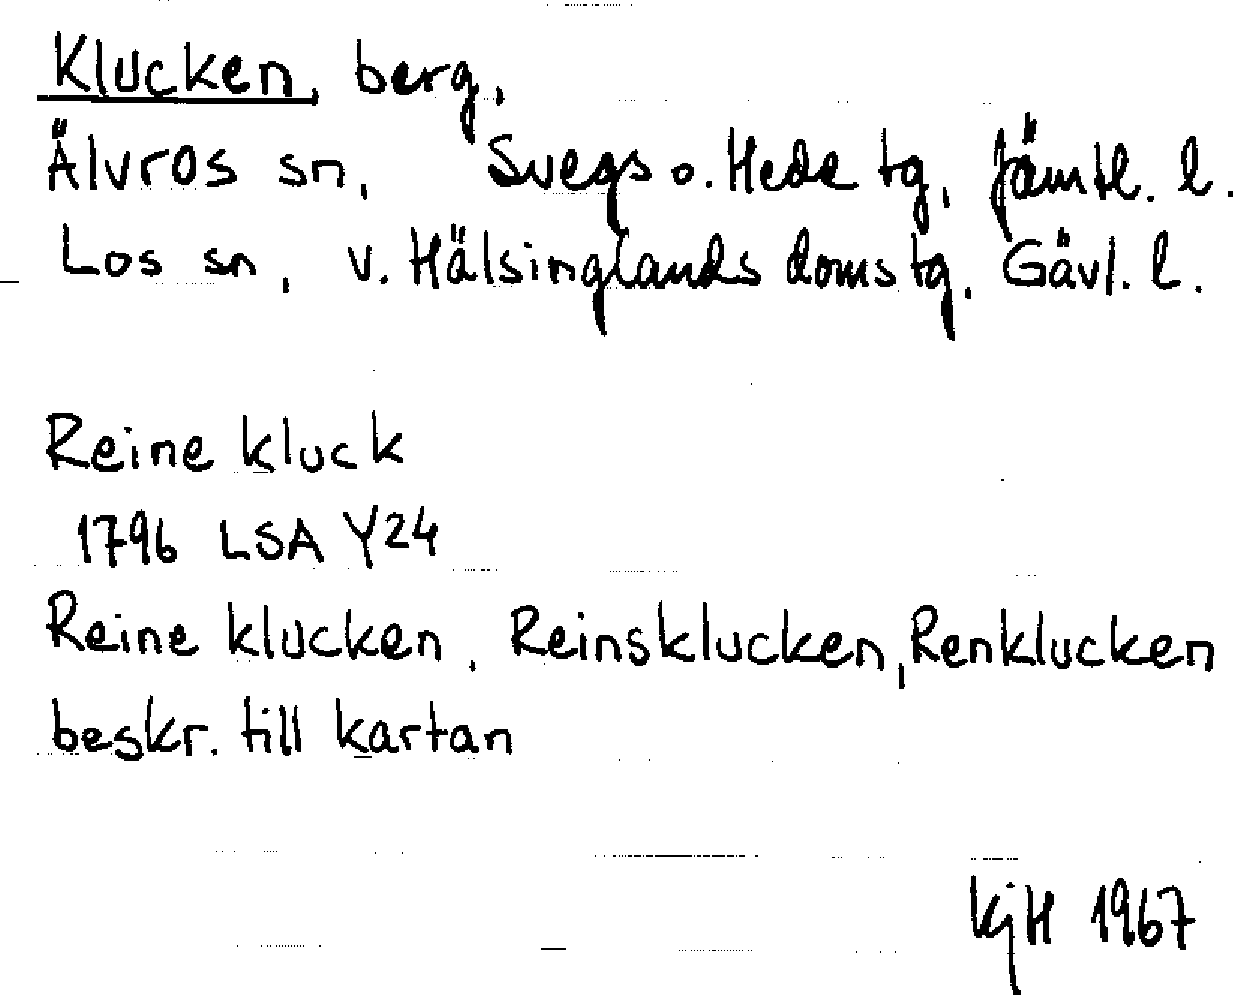 Klucken, berg,
Älvros sn, Svegs o. Hede tg, Jämtl. l.
Los sn, v. Hälsinglands doms tg, Gävl. l.
Reine kluck
1796 LSA Y24
Reine klucken, Reinsklucken, Renklucken
beskr. till kartan
KjH 1967